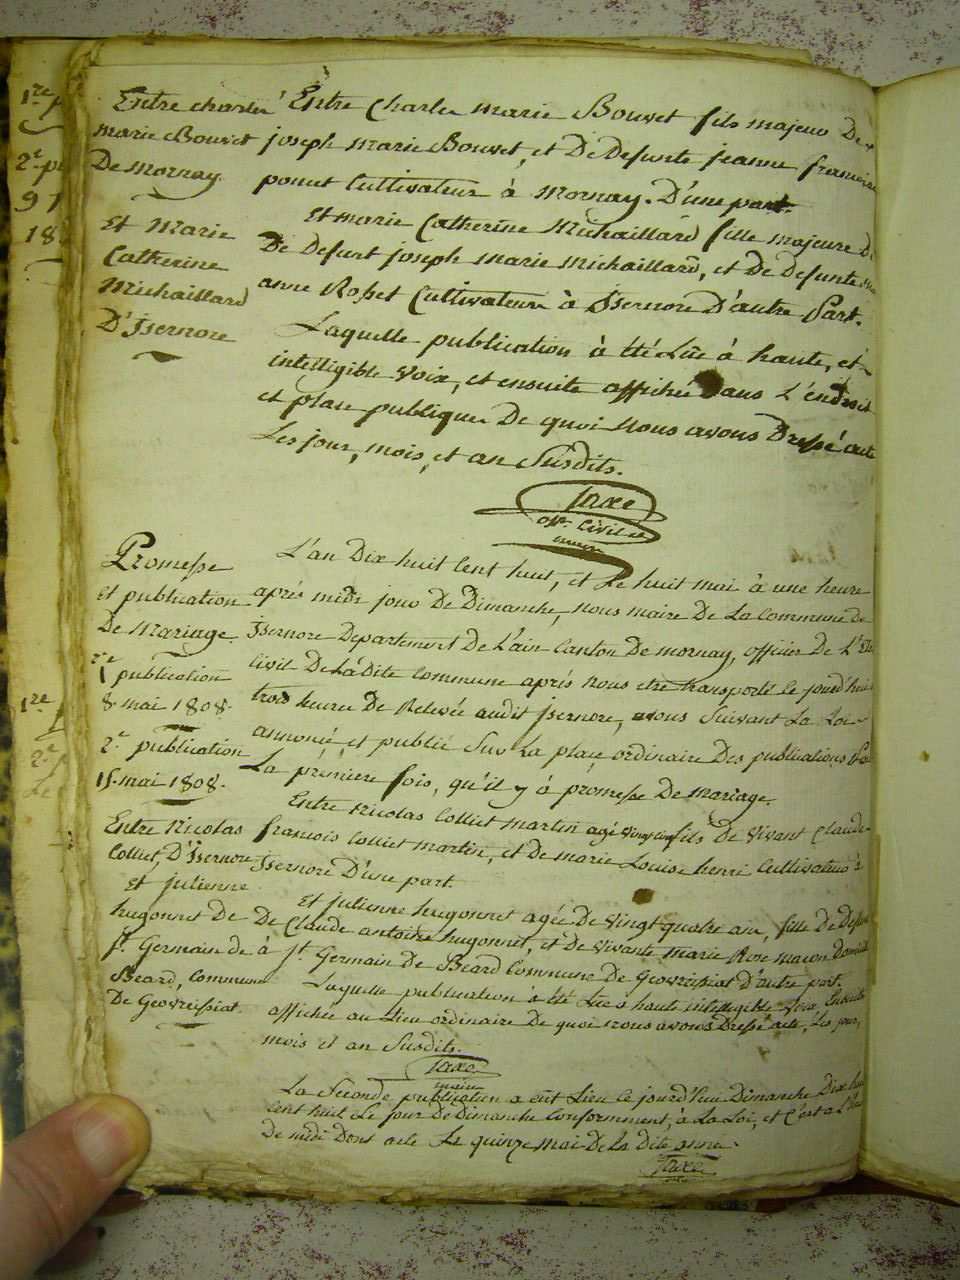 Entre charles
marie Bouvet
De mornay.
Et Marie
Catherine
Michaillard
D'Jsernore
Entre Charles marie Bouvet fils majeur De
joseph marie Bouvet, et De Defunte jeanne francoise
ponut Cultivateur à mornay. D'une part.
Et marie Catherine Michaillard fille majeure De
De Defunt joseph marie michaillard, et De defunte
anne Rosset Cultivateur à Jsernore D'autre Part.
Laquelle publication à été Lue à haute, et
intelligible voix, et ensuite affichée Dans L'endroit
et place publique De quoi nous avons Dressé acte
Les jour, mois, et an Susdits.
Jaxe
off. Civil et
maire
Promesse
Et publication
De Mariage.
1re publication
8. mai 1808.
2e publication
15. mai 1808.
Entre Nicolas
Colliet, D'Jsernore
Et julienne
hugonnet de
St. Germain de
Beard, commune
De Geovreissiat.
L'an Dix huit Cent huit, et Le huit mai à une heure
aprés midi jour De Dimanche, nous maire De La Commune De
Jsernore Departement De L'ain Canton De mornay, officier De L'Etat
Civil De Ladite Commune aprés nous etre transporté le jourd'hui
trois heures De Relevée audit Jsernore, avons Suivant La Loi
annoncé, et publié Sur La place ordinaire Des publications Pour
La première fois, qu'il y à promesse De mariage.
Entre Nicolas Colliet martin agé vingt cinq fils De vivant Claude
francois Colliet martin, et de marie Louise henri Cultivateur à
Jsernore D'une part.
Et julienne hugonnet agée De vingt quatre ans, fille De Defunt
De Claude antoine hugonnet, et De vivante marie Rose macon
à St. Germain De Beard Commune De Geovreissiat D'autre part.
Laquelle publication à été Lue à haute intelligible voix Ensuite
affichée au Lieu ordinaire De quoi nous avons Dressé acte, Les jour,
mois et an Susdits.
Jaxe
maire
La Seconde publication a eut Lieu Ce jourd'hui Dimanche Dix huit
Cent huit Le jour De Dimanche Conformment, à La Loi, et C'est à
De midi Dont acte Le quinze mai De La Dite anne.
Jaxe